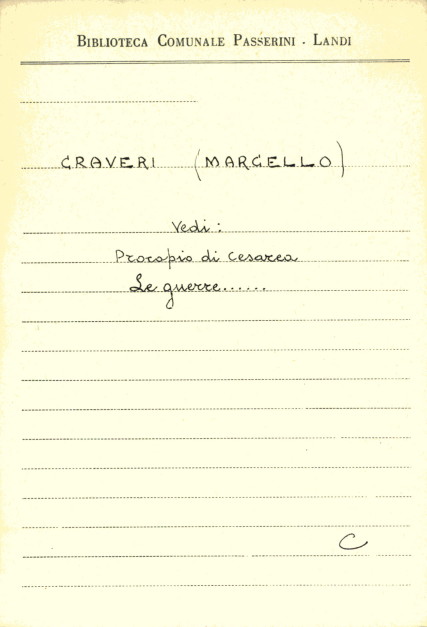 BIBLIOTECA COMUNALE PASSERINI - LANDI
CRAVERI (MARCELLO)
Vedi:
Procopio di Cesarea
Le guerre......
C